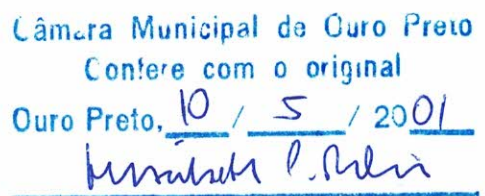 Câmara Municipal de Ouro Preto
Confere com o original
Ouro Preto, 10 / 5 / 2001